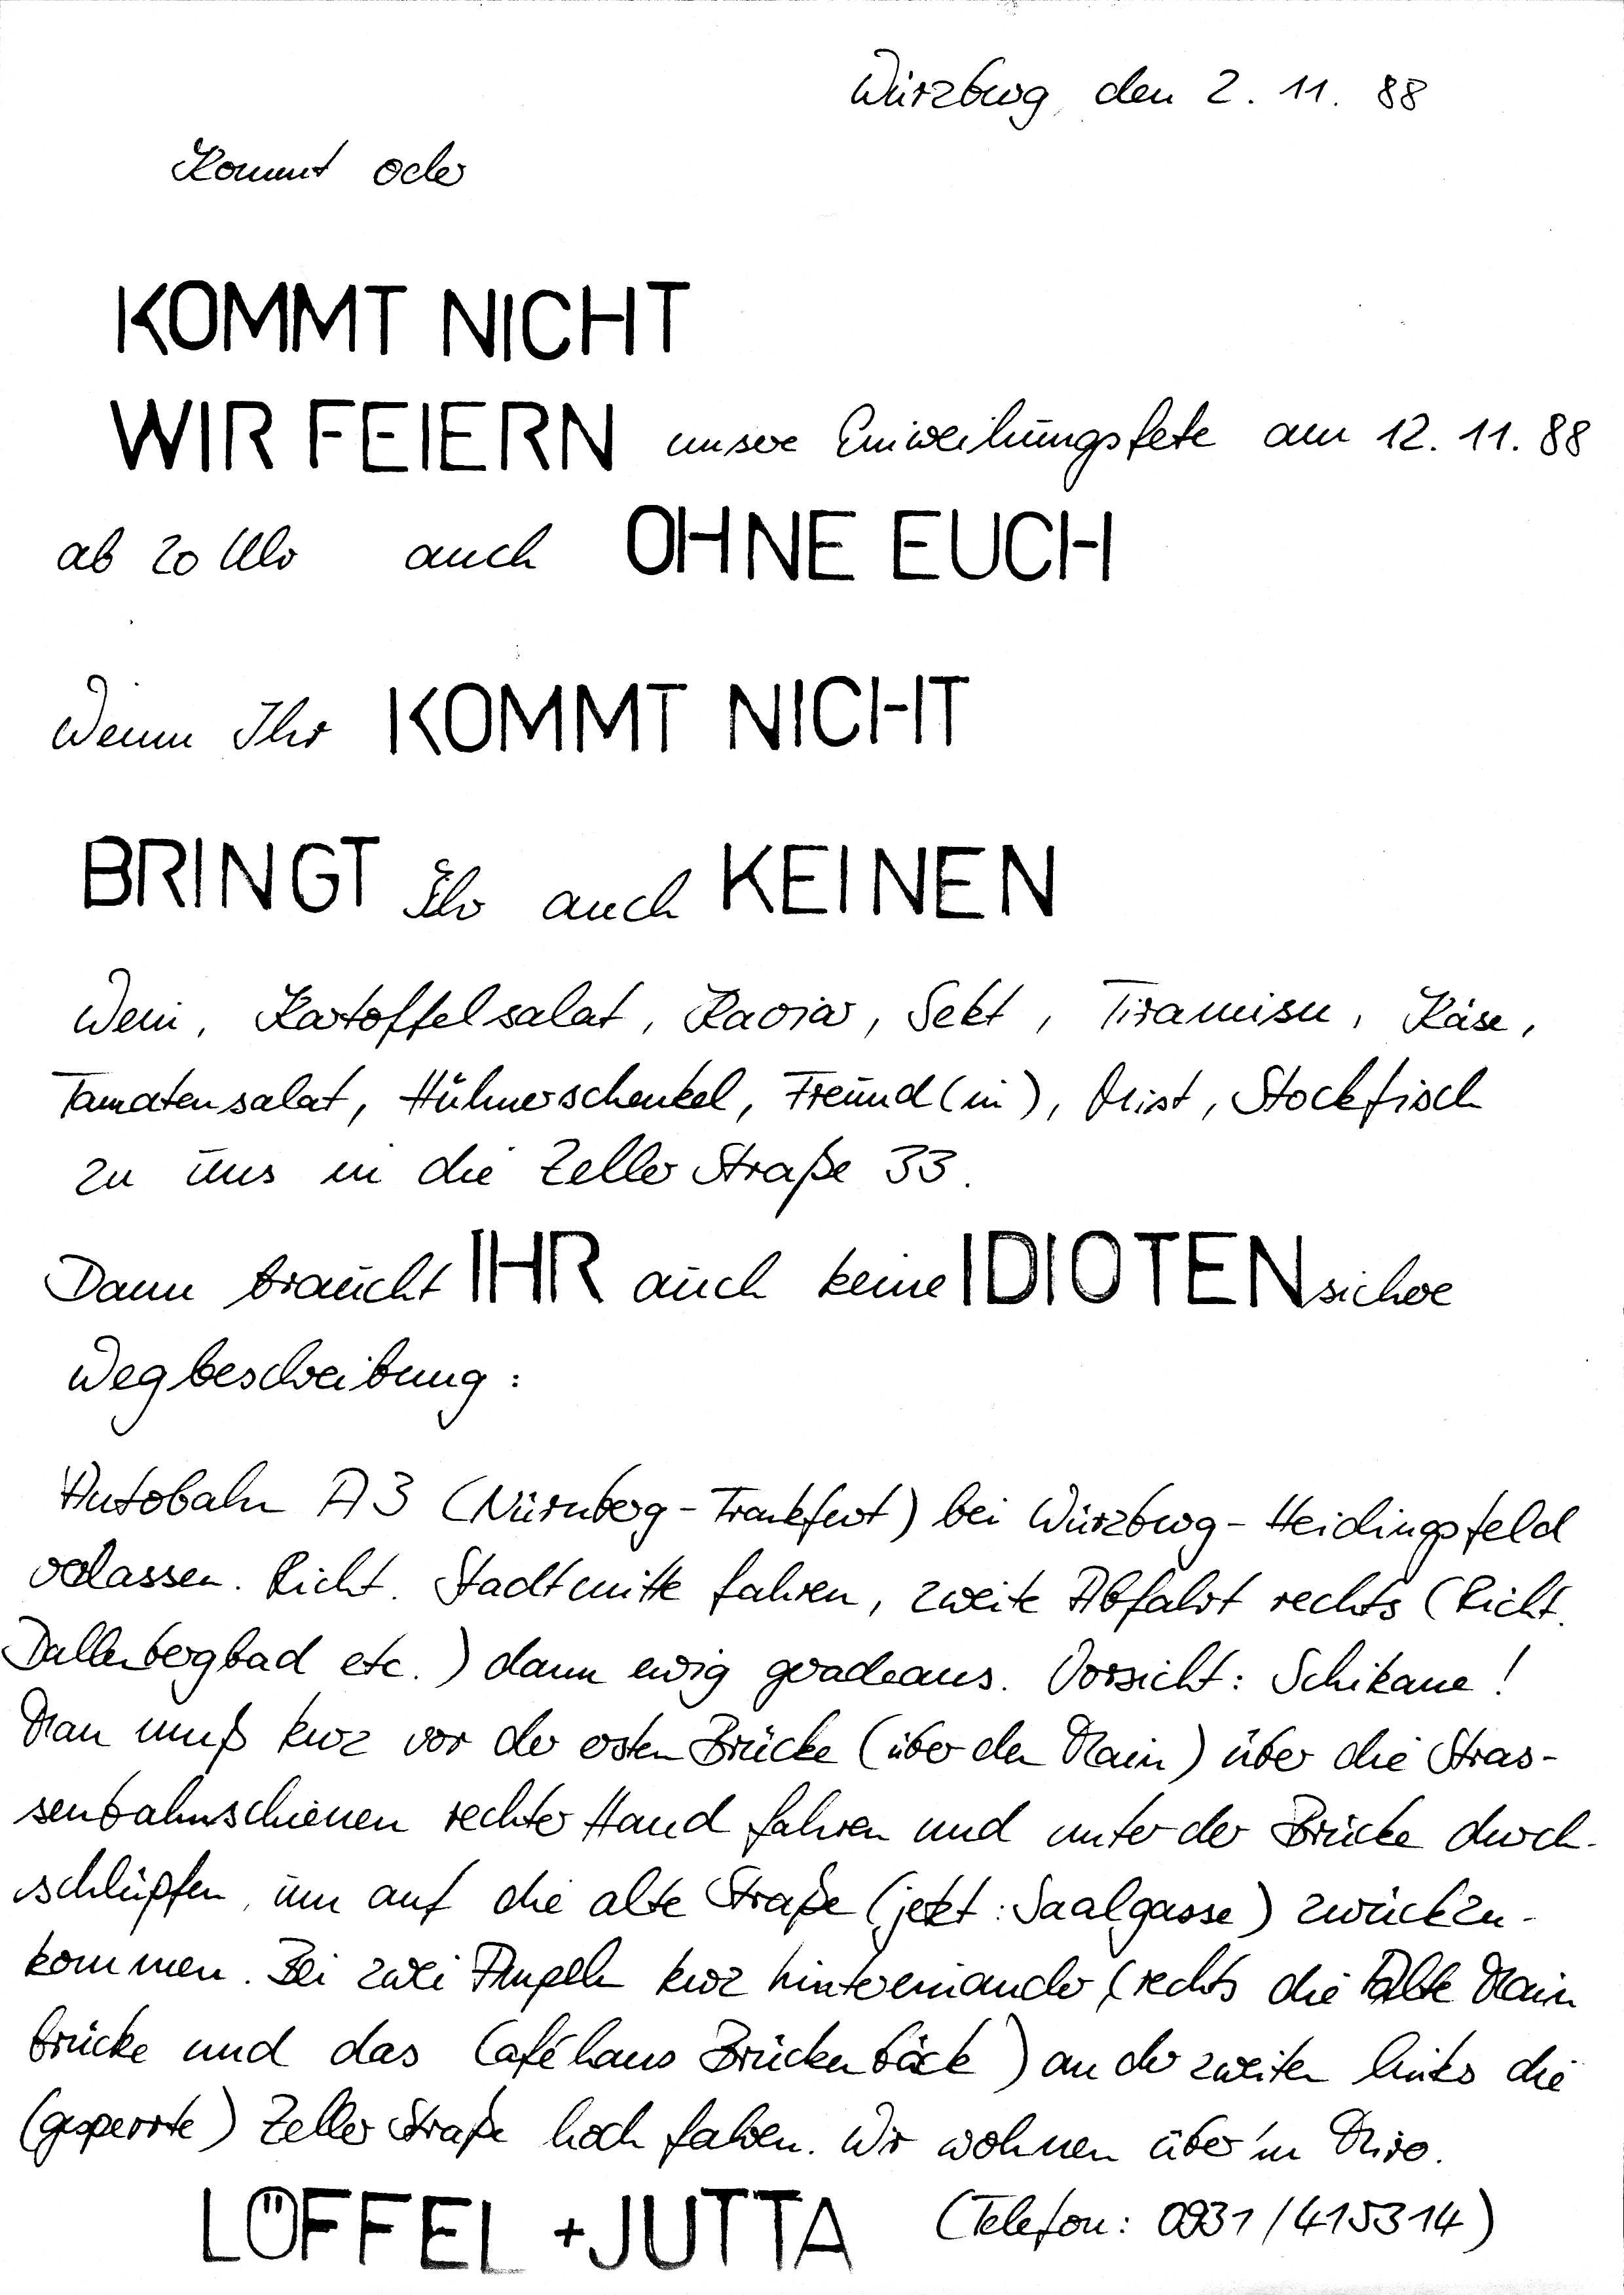 Würzburg, den 2. 11. 88
Kommt oder
KOMMT NICHT
WIR FEIERN unsere Einweihungsfete am 12. 11. 88
ab 20 Uhr auch OHNE EUCH
Wenn Ihr KOMMT NICHT
BRINGT Ihr auch KEINEN
Wein, Kartoffelsalat, Kaviar, Sekt, Tiramisu, Käse,
Tamatensalat, Hühnerschenkel, Freund(in), Mist, Stockfisch
zu uns in die Zeller Straße 33.
Dann braucht IHR auch keine IDIOTENsichere
Wegbeschreibung:
Autobahn A3 (Nürnberg-Frankfurt) bei Würzburg-Heidingsfeld
verlassen. Richt. Stadtmitte fahren, zweite Abfahrt rechts (Richt.
Dallenbergbad etc.) dann ewig geradeaus. Vorsicht: Schikane!
Man muß kurz vor der ersten Brücke (über den Main) über die Stras-
senbahnschienen rechter Hand fahren und unter der Brücke durch-
schlüpfen, um auf die alte Straße (jetzt: Saalgasse) zurückzu-
kommen. Bei zwei Ampeln kurz hintereinander (rechts die Alte Main
brücke und das Caféhaus Brückenbäck) an der zweiten links die
(gesperrte) Zeller Straße hoch fahren. Wir wohnen über'm Miro.
LÖFFEL + JUTTA (Telefon: 0931/415314)